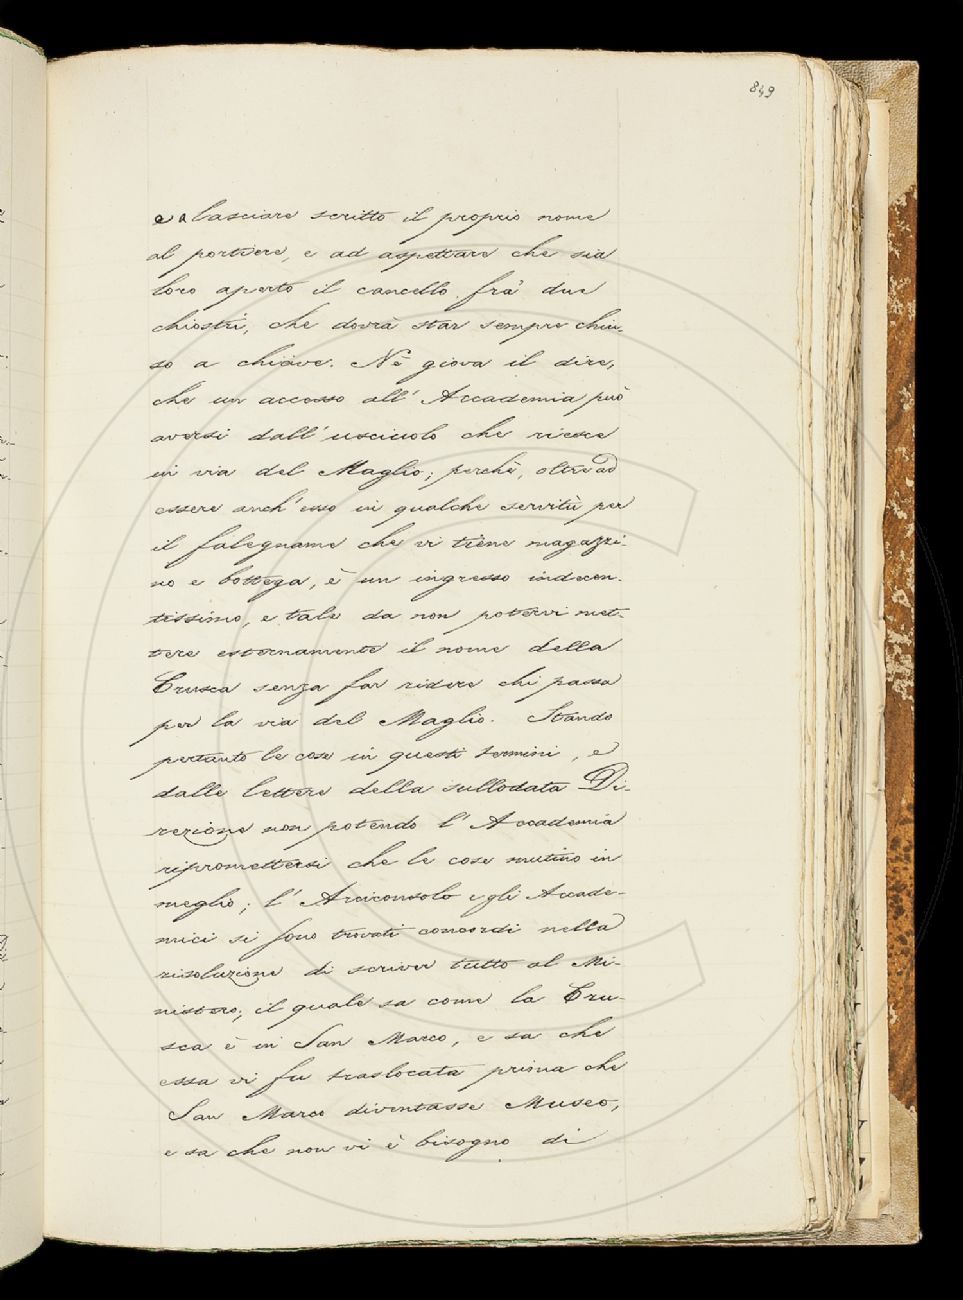 849
e a lasciare scritto il proprio nome
al portiere, e ad aspettare che sia
loro aperto il cancello frà due
chiostri, che dovrà star sempre chiu-
so a chiave. Nè giova il dire,
che un accesso all' Accademia può
aversi dall' usciuolo che riesce
in via del Maglio; perchè, oltre ad
essere anch' esso in qualche servitù per
il falegname che vi tiene magazzi-
no e bottega, è un ingresso indecen-
tissimo, e tale da non potervi met-
tere esternamente il nome della
Crusca senza far ridere chi passa
per la via del Maglio. Stando
pertanto le cose in questi termini, e
dalle lettere della sullodata Di-
rezione non potendo l' Accademia
ripromettersi che le cose mutino in
meglio; l' Arciconsolo e gli Accade-
mici si sono trovati concordi nella
risoluzione di scriver tutto al Mi-
nistero; il quale sa come la Cru-
sca è in San Marco, e sa che
essa vi fu traslocata prima che
San Marco diventasse Museo,
e sa che non vi è bisogno di